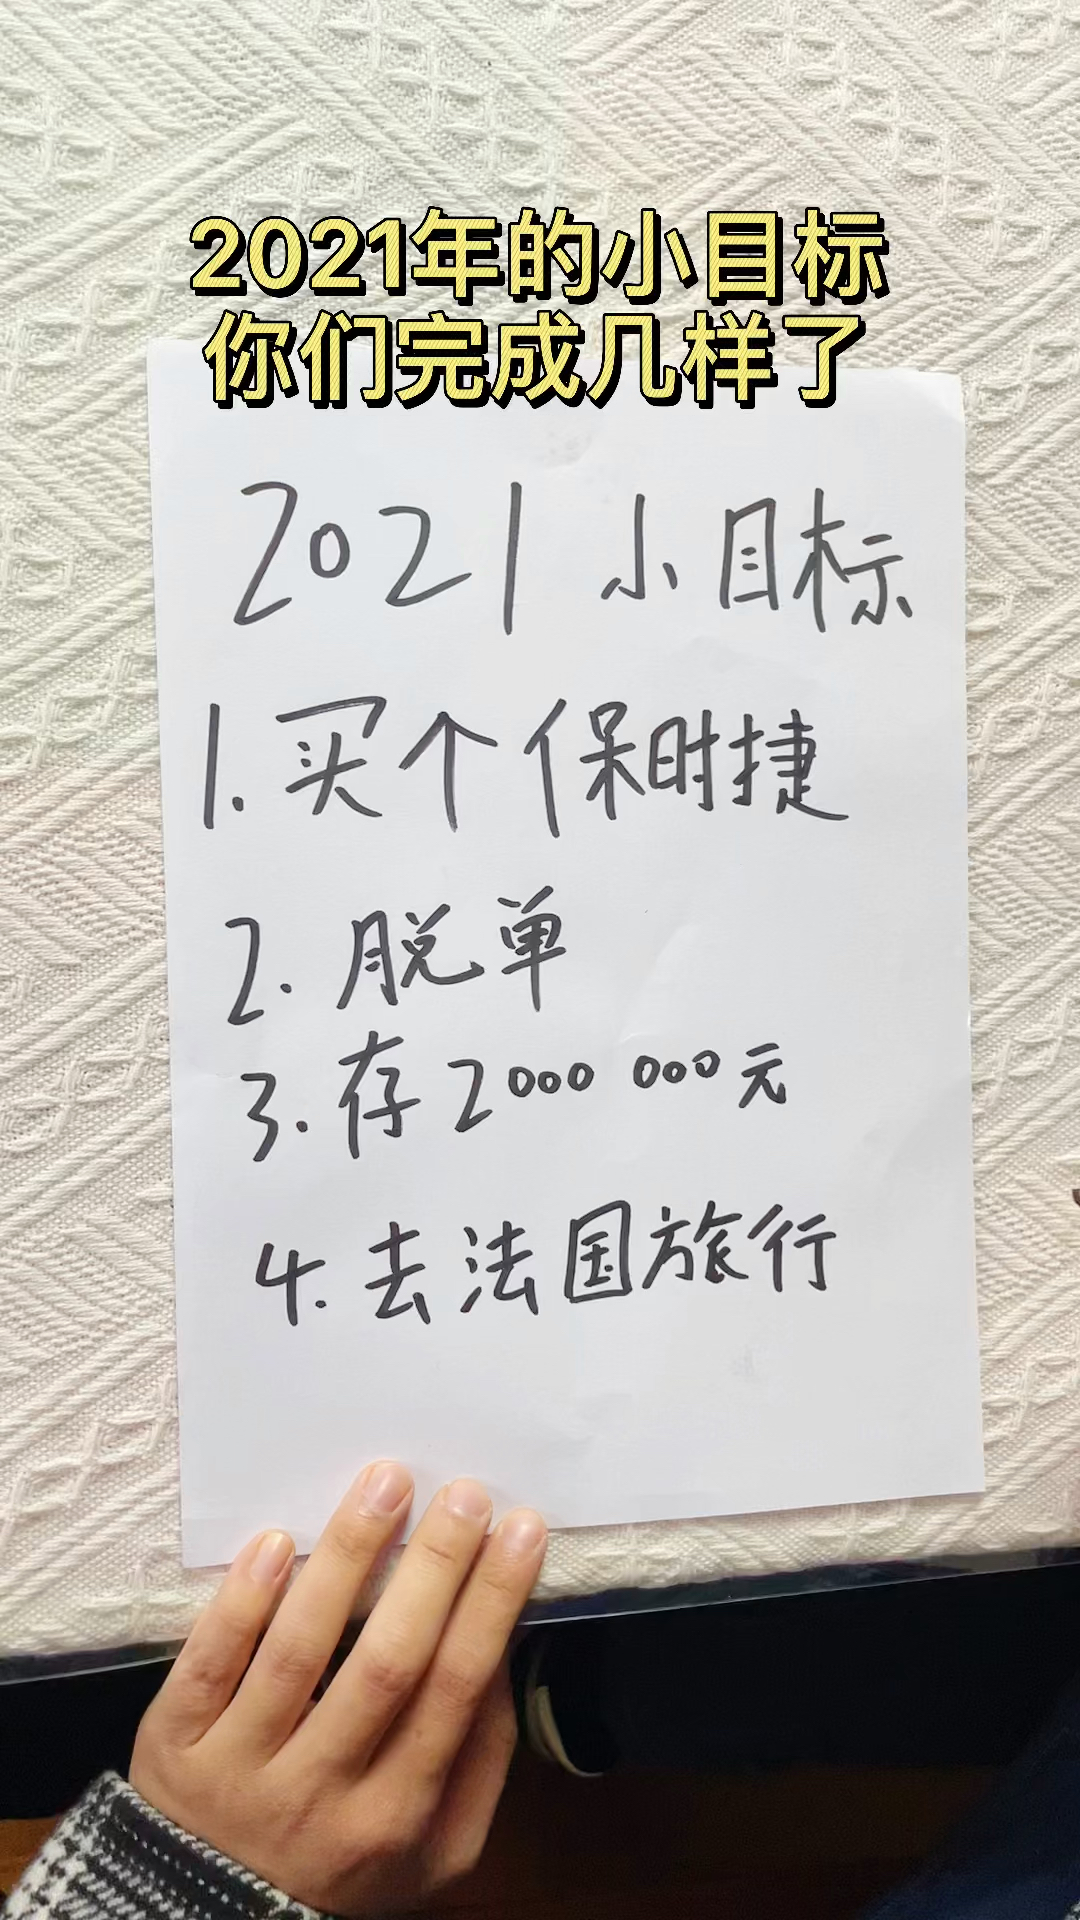 2021年的小目标
你们完成几样了
2021 小目标
1. 买个保时捷
2. 脱单
3. 存2000 000元
4. 去法国旅行